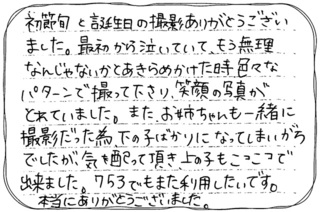 初節句と誕生日の撮影ありがとうござい
ました。最初から泣いていて、もう無理
なんじゃないかとあきらめかけた時色々な
パターンで撮って下さり、笑顔の写真が
とれていました。また、お姉ちゃんも一緒に
撮影だった為、下の子ばかりになってしまいがち
でしたが、気を配って頂き、上の子もニコニコで
出来ました。753でもまた利用したいです。
本当にありがとうございました。